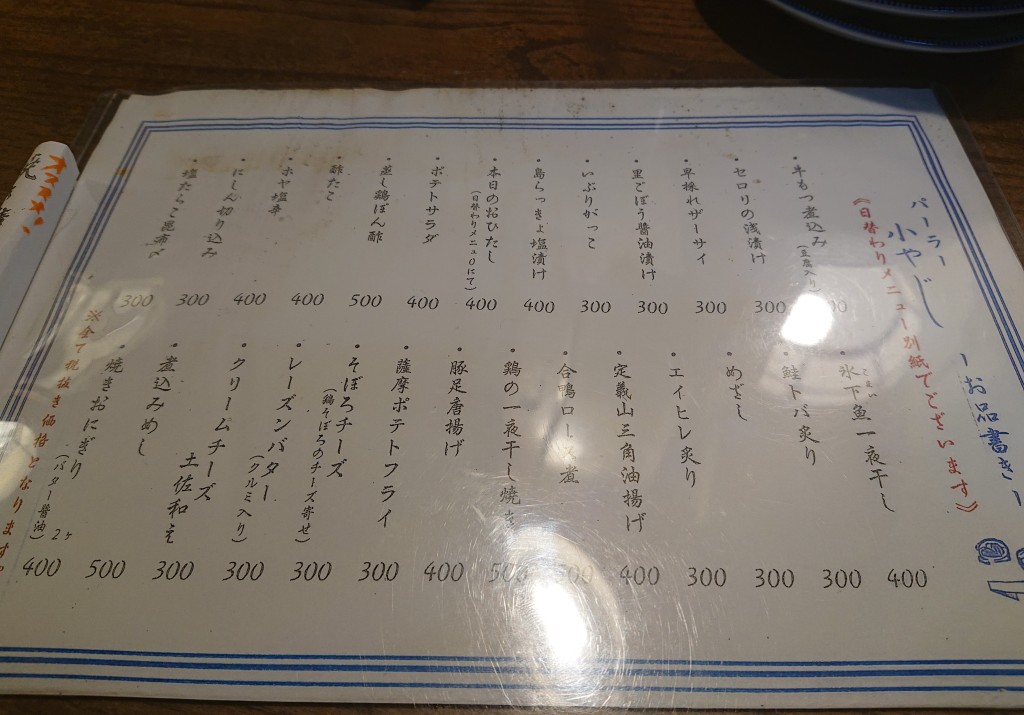 パーラー
小やじ
ーお品書きー
《日替わりメニュー別紙でございます》
・牛もつ煮込み (豆腐入り) 00
・セロリの浅漬け 300
・早採れザーサイ 300
・里ごぼう醤油漬け 300
・いぶりがっこ 300
・島らっきょ塩漬け 400
・本日のおひたし 400
(日替わりメニュにて)
・ポテトサラダ 400
・蒸し鶏ぽん酢 500
・酢たこ 400
・ホヤ塩辛 400
・にしん切り込み 300
・塩たらこ昆布〆 300
・氷下魚一夜干し 400
・鮭トバ炙り 300
・めざし 300
・エイヒレ炙り 300
・定義山三角油揚げ 400
・合鴨ロース煮 500
・鶏の一夜干し焼き 500
・豚足唐揚げ 400
・薩摩ポテトフライ 300
・そぼろチーズ 300
(鶏そぼろのチーズ寄せ)
・レーズンバター 300
(クルミ入り)
・クリームチーズ
土佐和え 300
・煮込みめし 500
・焼きおにぎり 400
(バター醤油) 2ヶ
・全て税抜き価格となります。